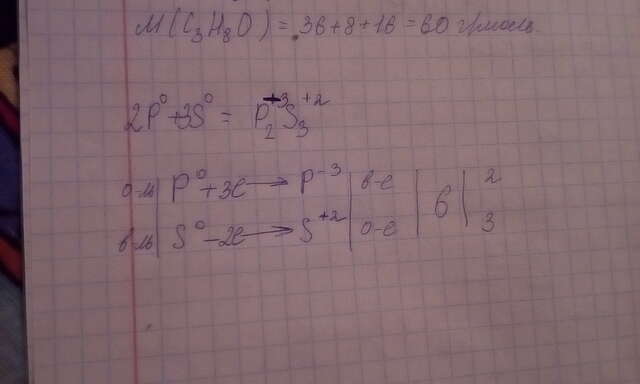 M(C₃H₈O) = 36+8+16=60 г/моль.
2P⁰+3S⁰ = P₂⁺³S₃⁺²
о-ль | P⁰+3e⟶P⁻³ | в-е | 6 | 2
в-ль | S⁰-2e⟶S⁺² | о-е | 3